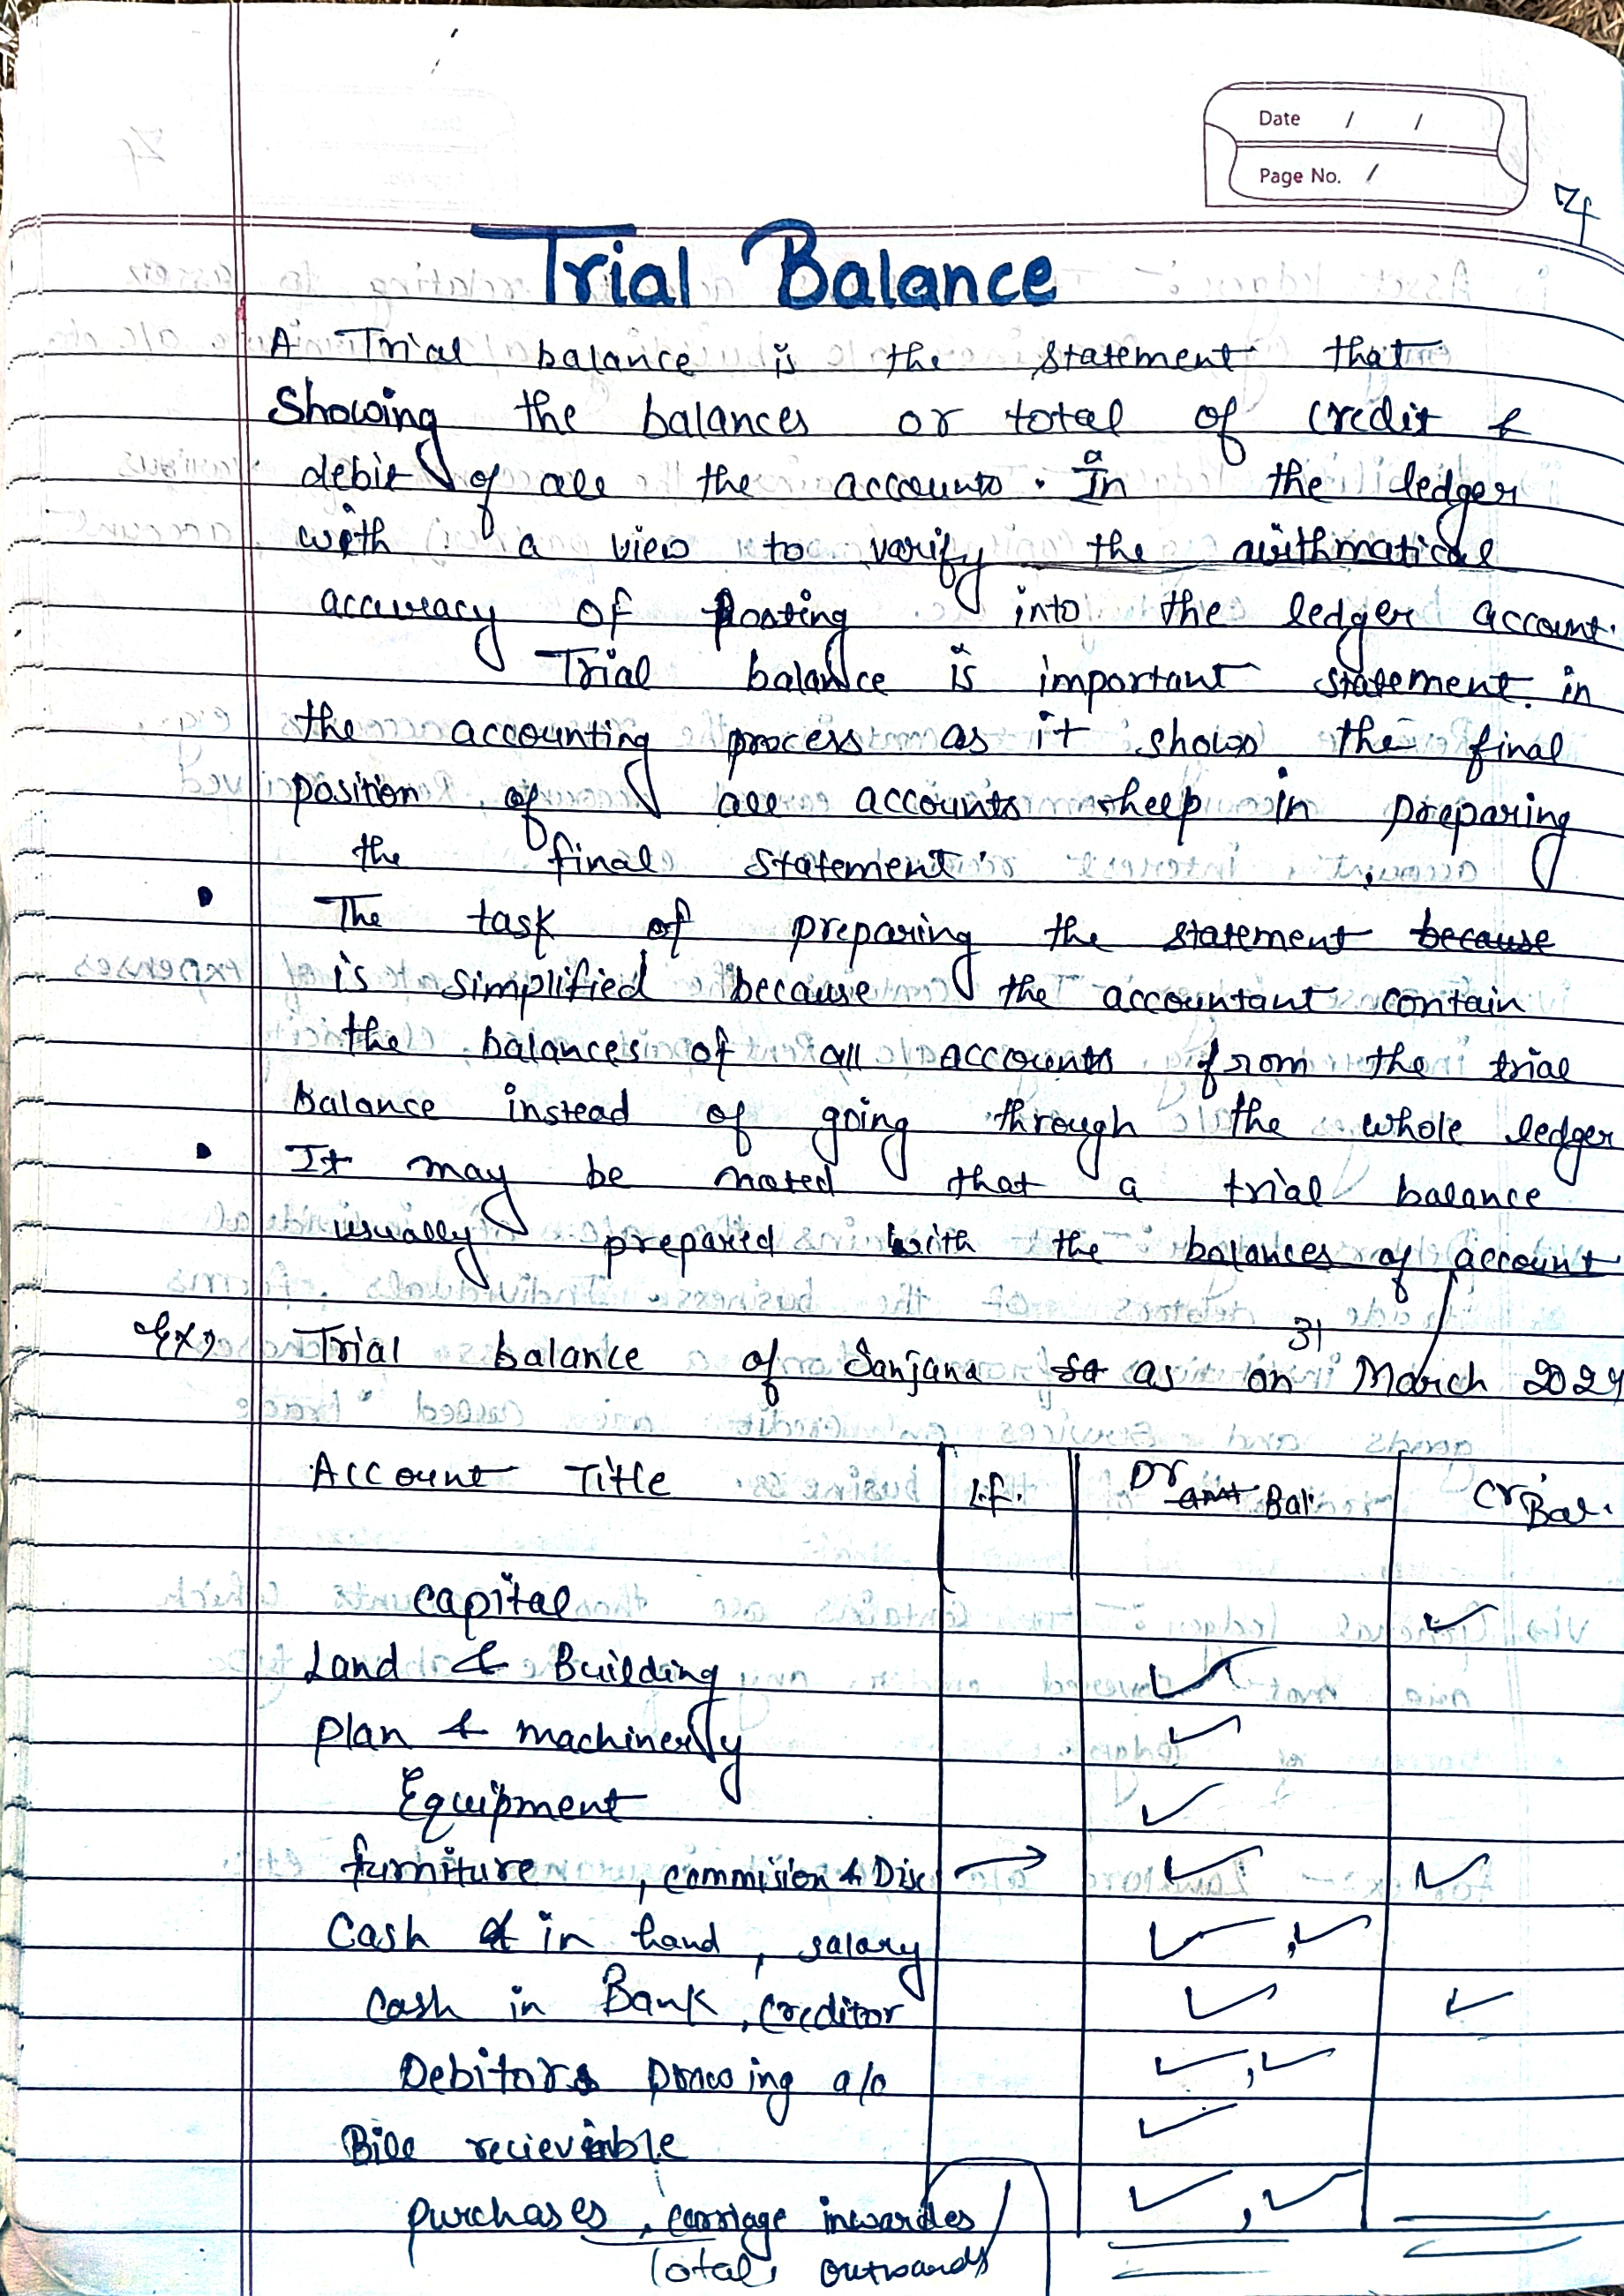 Date / /
Page No. /
Trial Balance
A Trial balance is the statement that
Showing the balances or total of credit &
debit of all the accounts. In the ledger
with a view to varify the arithmatical
accuracy of Posting into the ledger account.
Trial balance is important statement in
the accounting process as it shows the final
position of all accounts & help in preparing
the final statement.
• The task of preparing the statement because
is simplified because the accountant contain
the balances of all accounts from the trial
Balance instead of going through the whole ledger
• It may be noted that a trial balance
usually prepared with the balances of account
Ex) Trial balance of Sanjana as on 31 March 2024
Account Title L.f. Dr amt Bal. Cr Bal.
Capital ✓
Land & Building ✓
plan & machinerly ✓
Equipment ✓
furniture, commision & Disc → ✓ ✓
Cash in hand, salary ✓, ✓
Cash in Bank, Creditor ✓ ✓
Debitors Drawing a/c ✓, ✓
Bill recievable ✓
purchases, carriage inwardes ✓, ✓
Total, outwards